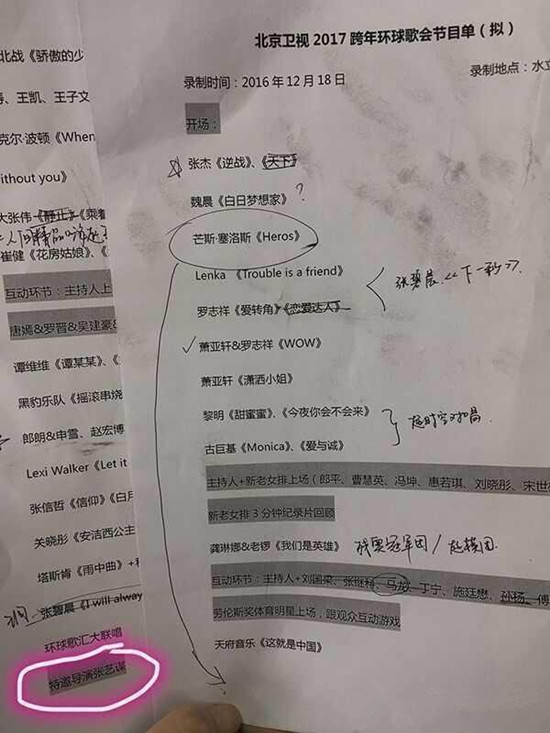 北京卫视 2017 跨年环球歌会节目单（拟）
录制时间：2016 年 12 月 18 日
录制地点：水立
开场：
张杰《逆战》、《天下》
魏晨《白日梦想家》?
芒斯·塞洛斯《Heros》
Lenka 《Trouble is a friend》
张碧晨《下一秒》
罗志祥《爱转角》《恋爱达人》
✓萧亚轩&罗志祥《WOW》
萧亚轩《潇洒小姐》
黎明《甜蜜蜜》、《今夜你会不会来》
超时空对唱
古巨基《Monica》、《爱与诚》
主持人+新老女排上场（郎平、曹慧英、冯坤、惠若琪、刘晓彤、宋世雄
新老女排 3 分钟纪录片回顾
龚琳娜&老锣《我们是英雄》
残奥冠军团/
互动环节：主持人+刘国梁、张继科、马龙、丁宁、施廷懋、孙杨、傅
劳伦斯奖体育明星上场，跟观众互动游戏
天府音乐《这就是中国》
北战《骄傲的少
、王凯、王子文
克尔·波顿《When
ithout you》
大张伟《静止》《乘着
崔健《花房姑娘》、《
互动环节：主持人上
唐嫣&罗晋&吴建豪&
谭维维《谭某某》、《
黑豹乐队《摇滚串烧
郎朗&申雪、赵宏博
Lexi Walker《Let it
张信哲《信仰》《白月
关晓彤《安洁西公主
塔斯肯《雨中曲》+
张碧晨《I will alway
环球歌汇大联唱
特邀导演张艺谋